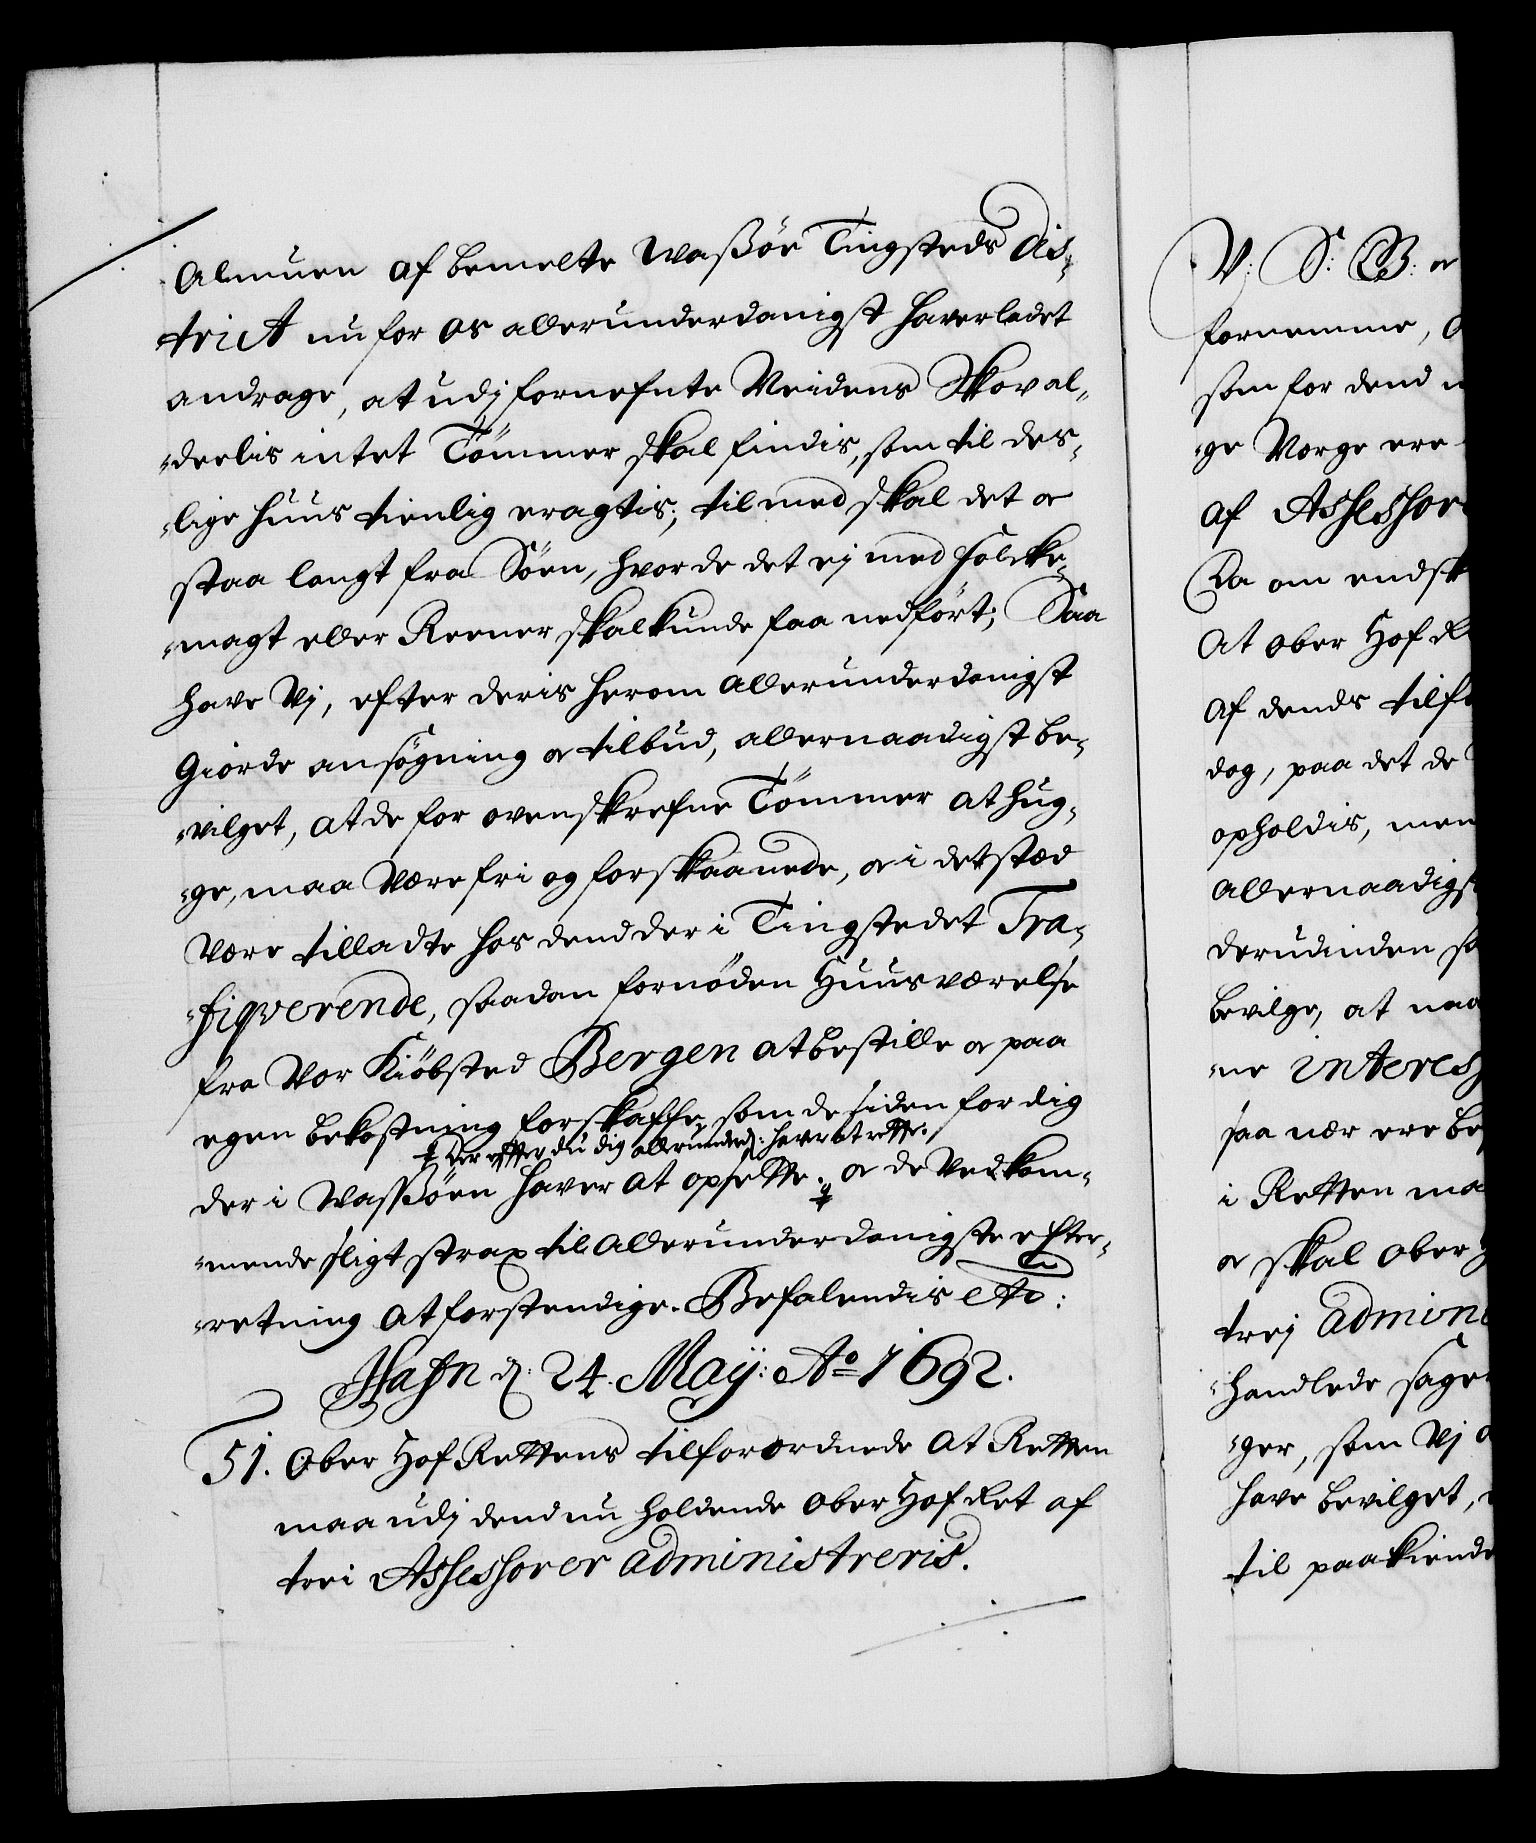 Almuen af bemelte Wasßöe Tingsteds dis-
trict nu for os allerunderdanigst haver ladet
andrage, at udj fornefnte Reidens Skov al-
-deelis intet Tömmer skal findis, som til des-
-lige huus tienlig eragtis; tilmed skal det oc
staa langt fra Söen, hvor de det ej med folcke-
-magt eller Reener skal kunde faa nedfört; Saa
have Vj, efter deris herom allerunderdanigst
giorde ansøgning oc tilbud, allernaadigst be-
-vilget, at de for ovenskrefne Tömmer at hug-
-ge, maa være fri og forskaanede, oc i det stæd
være tilladte hos dend der i Tingstedet Tra-
-fiqverende, saadan fornøden Huusværelse
fra Vor Kiöbsted Bergen at bestille oc paa
egen bekostning forskaffe, som de siden for dig
‡ Der effter du dig allerunderd: haver at rette.
der i Wasßöen haver at opsette. ‡ oc de Vedkom-
-mende sligt strax til allerunderdanigste efter-
-retning at forstendige. Befalendis etc:
Hafn d: 24. Maÿ: Ao 1692.
51. Ober Hof Rettens tilforordnede at Retten
maa udj dend nu holdende Ober Hof Ret af
trei Assessorer administreris.
V: S: G: oc
fornemme,
som for dend
-ge Norge ere
af Assessor
Da om endsk
At Ober Hof R
af dends tilf
dog, paa det de
opholdis, men
allernaadigs
derudinden s
bevilge, at naa
-ne interes
saa nær ere be
i Retten ma
oc skal Ober
trej admini
-handlede sage
-ger, som Vj
have bevilget,
til paakiende